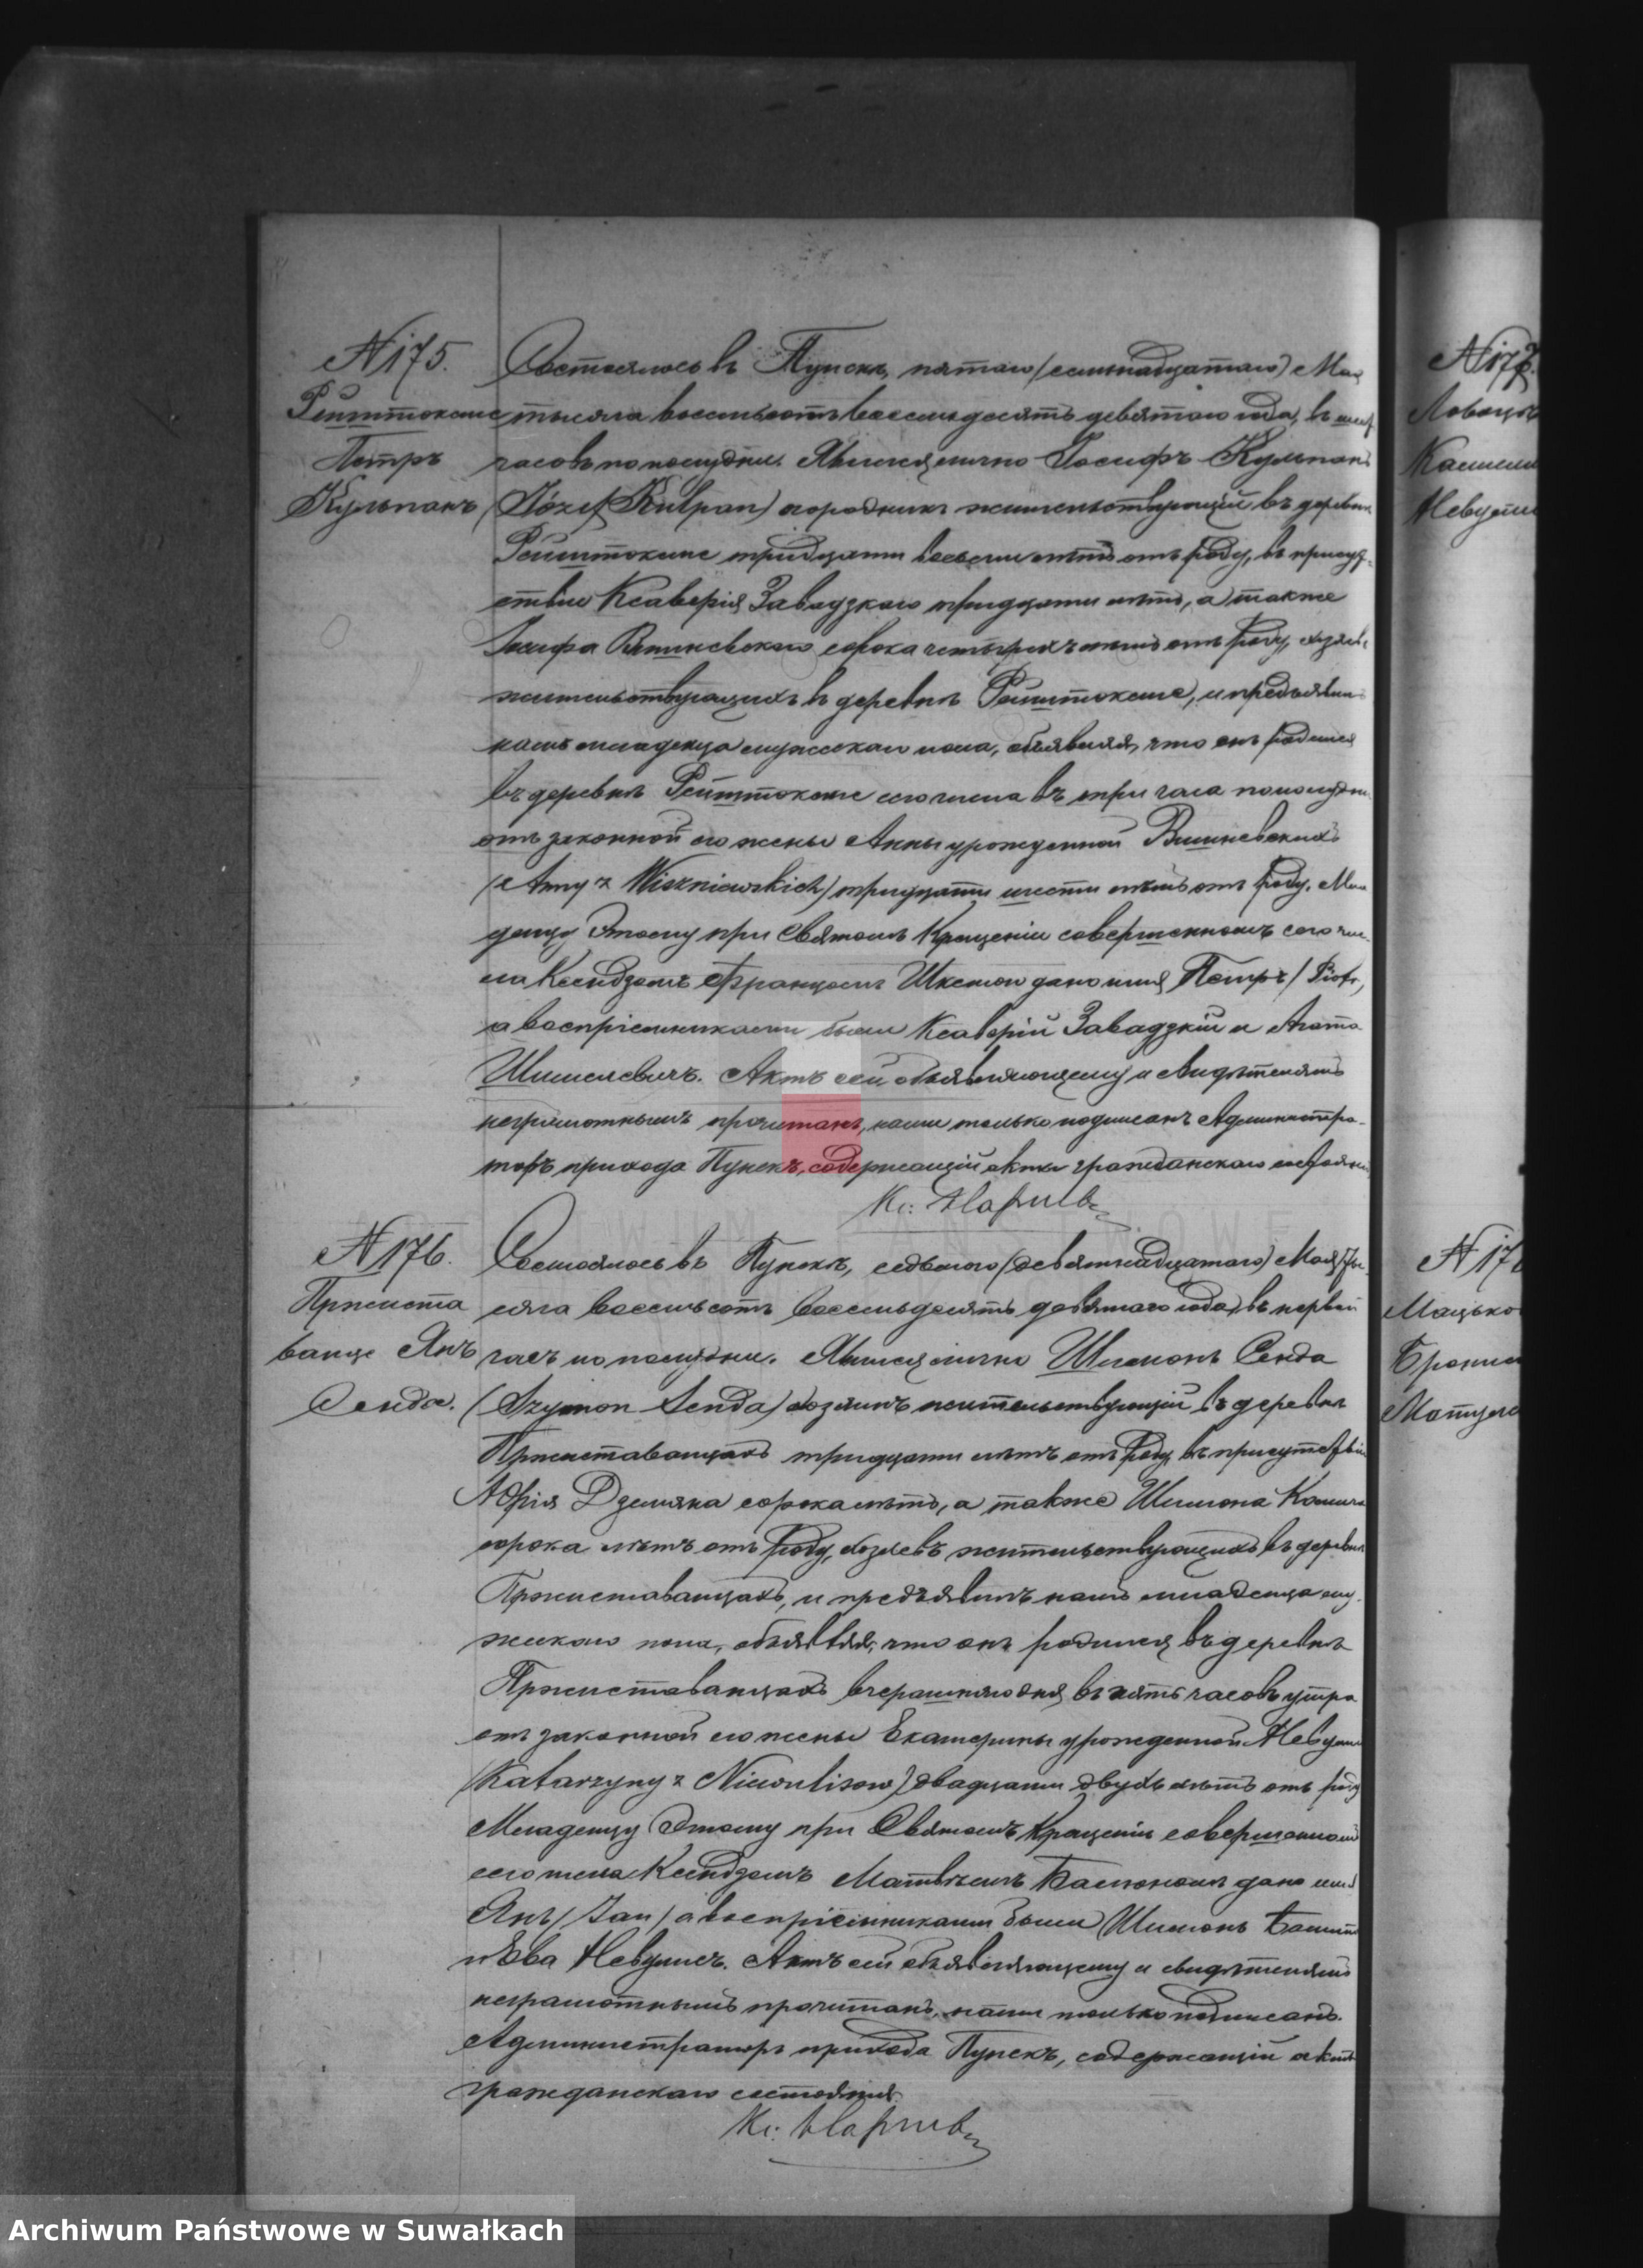 N 175.
Рейштокеме
Петръ
Кульпанъ
Состоялось въ Пунскѣ, пятаго (семнадцатаго) Мая
тысяча восемьсотъ восемьдесятъ девятаго года, въ
часовъ по полудни. Явился лично Іосифъ Кульпанъ
(Józef Kulpan) огородникъ жительствующій въ деревнѣ
тридцати восьми лѣтъ отъ роду, въ присут-
ствіи Ксаверія Завадзкаго тридцати лѣтъ, а также
Іосифа Вишневскаго сорока четырехъ лѣтъ отъ роду,
жительствующихъ въ деревнѣ и предъявилъ
намъ младенца мужескаго пола, объявляя, что онъ родился
въ деревнѣ сего числа въ три часа пополудни
отъ законной его жены Анны урожденной Вишневскихъ
(Anny z Wiszniewskich) тридцати шести лѣтъ отъ роду. Мла
денцу Этому при Святомъ Крещеніи совершенномъ сего чис-
ла Ксендзомъ Францомъ дано имя Петръ (Piotr,
а воспріемниками были Ксаверій Завадзкій и Агата
Шимелевичъ. Актъ сей объявляющему и свидѣтелямъ
неграмотнымъ прочитанъ, нами только подписанъ Администра-
торъ прихода Пунскъ, содержащій акты гражданскаго состоянія
N 176.
Пржиста
ванце Янъ
Сенда.
Состоялось въ Пунскѣ, седьмого (девятнадцатаго) Мая ты-
сяча восемьсотъ восемьдесятъ девятаго года, въ первый
часъ по полудни. Явился лично Шимонъ Сенда
(Szymon Senda) хозяинъ жительствующій въ деревнѣ
Пржиставанцахъ тридцати лѣтъ отъ роду, въ присутствіи
сорока лѣтъ, а также Шимона
сорока лѣтъ отъ роду, хозяевъ жительствующихъ въ деревнѣ
Пржиставанцахъ, и предъявилъ намъ младенца му-
жескаго пола, объявляя, что онъ родился въ деревнѣ
Пржиставанцахъ вчерашняго дня въ пять часовъ утра
отъ законной его жены Екатерины урожденной
(Katarzyny z Niewulisow) двадцати двухъ лѣтъ отъ роду
Младенцу Этому при Святомъ Крещеніи совершенномъ
сего числа Ксендзомъ Матвѣемъ дано имя
Янъ (Jan) а воспріемниками были Шимонъ
и Ева Невулисъ. Актъ сей объявляющему и свидѣтелямъ
неграмотнымъ прочитанъ, нами только подписанъ.
Администраторъ прихода Пунскъ, содержащій акты
гражданскаго состоянія.
N 177.
N 17
Archiwum Państwowe w Suwałkach